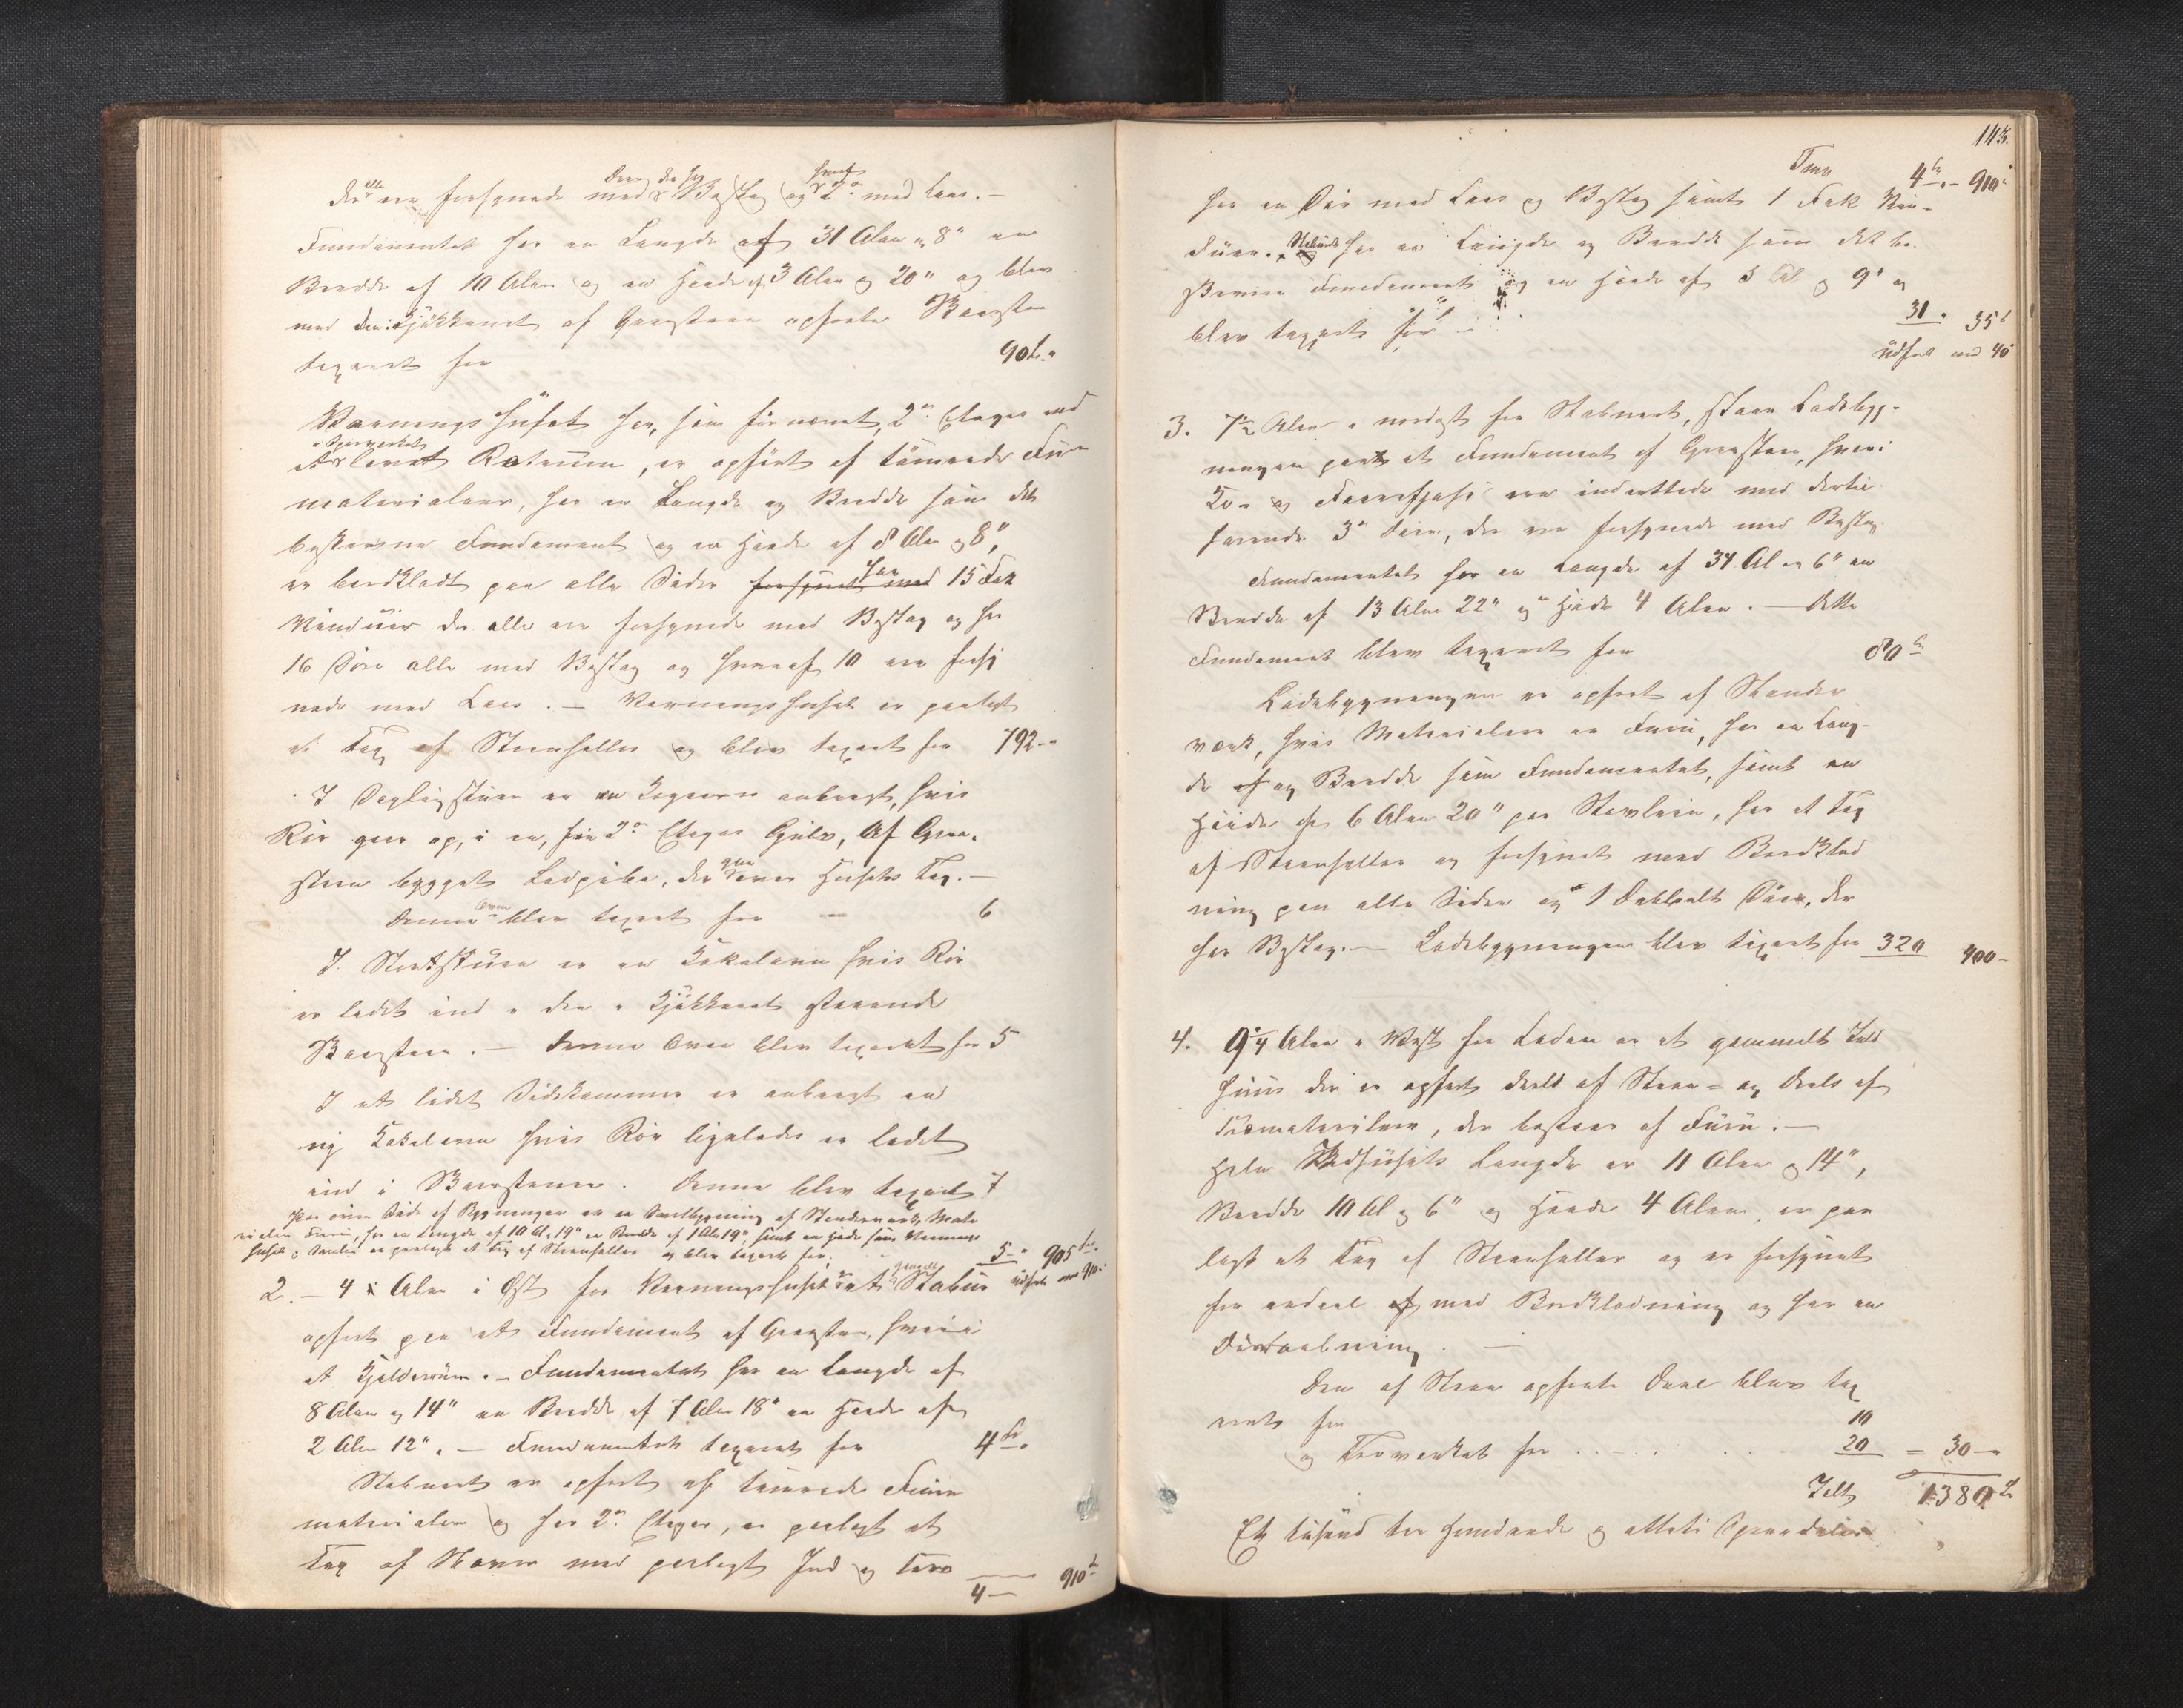 der alle ere forsynede med Beslag og 2de med Laas. —
Fundamentet har en Længde af 31 Alen 8" en
Bredde af 10 Alen og en Høide af 3 Alen og 20" og blev
med den i Kjøkkenet af Graasteen opførte Skorsteen
taxeret for 90 "
Vaaningshuset har, som før nævnt, 2de Etager med
et Rotrum, er opført af tømrede Furu
materialier, har en Længde og Bredde som det
beskrevne Fundament og en Høide af 8 Alen og 8",
er bordklædt paa alle Sider forsynet med har 15 Fak
Vinduer der alle ere forsynede med Beslag og har
16 Døre alle med Beslag og hvoraf 10 ere forsy
nede med Laas. — Vaaningshuset er paalagt
et Tag af Steenheller og blev taxeret for 792 - "
I Dagligstuen er en anbragt, hvis
Rør gaar op i en, fra 2den Etages Gulv, af Graa-
steen bygget Ladpibe, der gaar over Husets Tag. —
Denne Ovn blev taxeret for — 6
I Storstuen er en Kakelovn hvis Rør
er ledet ind i den i Kjøkkenet staaende
Skorsteen. — Denne Ovn blev taxeret for 5
I et lidet Sidekammer er anbragt en
ny Kakelovn hvis Rør ligeledes er ledet
ind i Skorstenen. Denne blev taxeret 7
Paa øvre Side af Bygningen er en Tverbygning af Stenderværk, Mate
rialier Furu, har en Længde af 10 Al. 19" en Bredde af 1 Alen 19", samt en Høide som Vaanings
huset, er paalagt et Tag af Steenheller og blev taxeret for 5 - " 905
2. — 4 Alen i Øst for Vaaningshuset er et gammelt Stabur Udført med 910
opført paa et Fundament af Graasteen, hvori
et Kjelderrum. — Fundamentet har en Længde af
8 Alen og 14" en Bredde af 7 Alen 18" en Høide af
2 Alen 12". — Fundamentet taxeret for 4
Staburet er opført af tømrede Furu
materialier og har 2de Etager, er paalagt et
Tag af med paalagt og Torv
4 — 910
143.
4 - " - 910
har en Dør med Laas og Beslag samt 1 Fak Vin-
duer. Staburet har en Længde og Bredde som det be-
skrevne Fundament og en Høide af 5 Al og 9" og
blev taxeret for 31 " 35
Udført med 40
3. 7½ Alen i nordost for Staburet, staar Ladebyg-
ningen paa et Fundament af Graasteen, hvori
Ko- og Faarefjøse ere indrettede med dertil
hørende 3de Døre, der ere forsynede med Beslag.
Fundamentet har en Længde af 34 Al og 6" en
Bredde af 13 Alen 22" og en Høide 4 Alen. — Dette
Fundament blev taxeret for 80
Ladebygningen er opført af Stender
værk, hvis Materialier er Furu, har en Læng-
de af og Bredde som Fundamentet, samt en
Høide af 6 Alen 20" paa Stavlein, har et Tag
af Steenheller og forsynet med Bordklæd
ning paa alle Sider og 1 Dobbelt Dør, der
har Beslag. — Ladebygningen blev taxeret for 320 400 -
4. 9¼ Alen i Vest for Laden er et gammelt Ild
huus der er opført deels af Steen- og deels af
Træmaterialier, der bestaar af Furu. —
Hele Ildhusets Længde er 11 Alen og 14",
Bredde 10 Al og 6" og Høide 4 Alen, er paa
lagt et Tag af Steenheller og er forsynet
for endeel af med Bordklædning og har en
Døraabning. —
Den af Steen opførte Deel blev tax
eret for 10
og Træværket for . . . . 20 = 30 —
Ialt 1380
Et tusend tre Hundrede og otteti Speciedaler